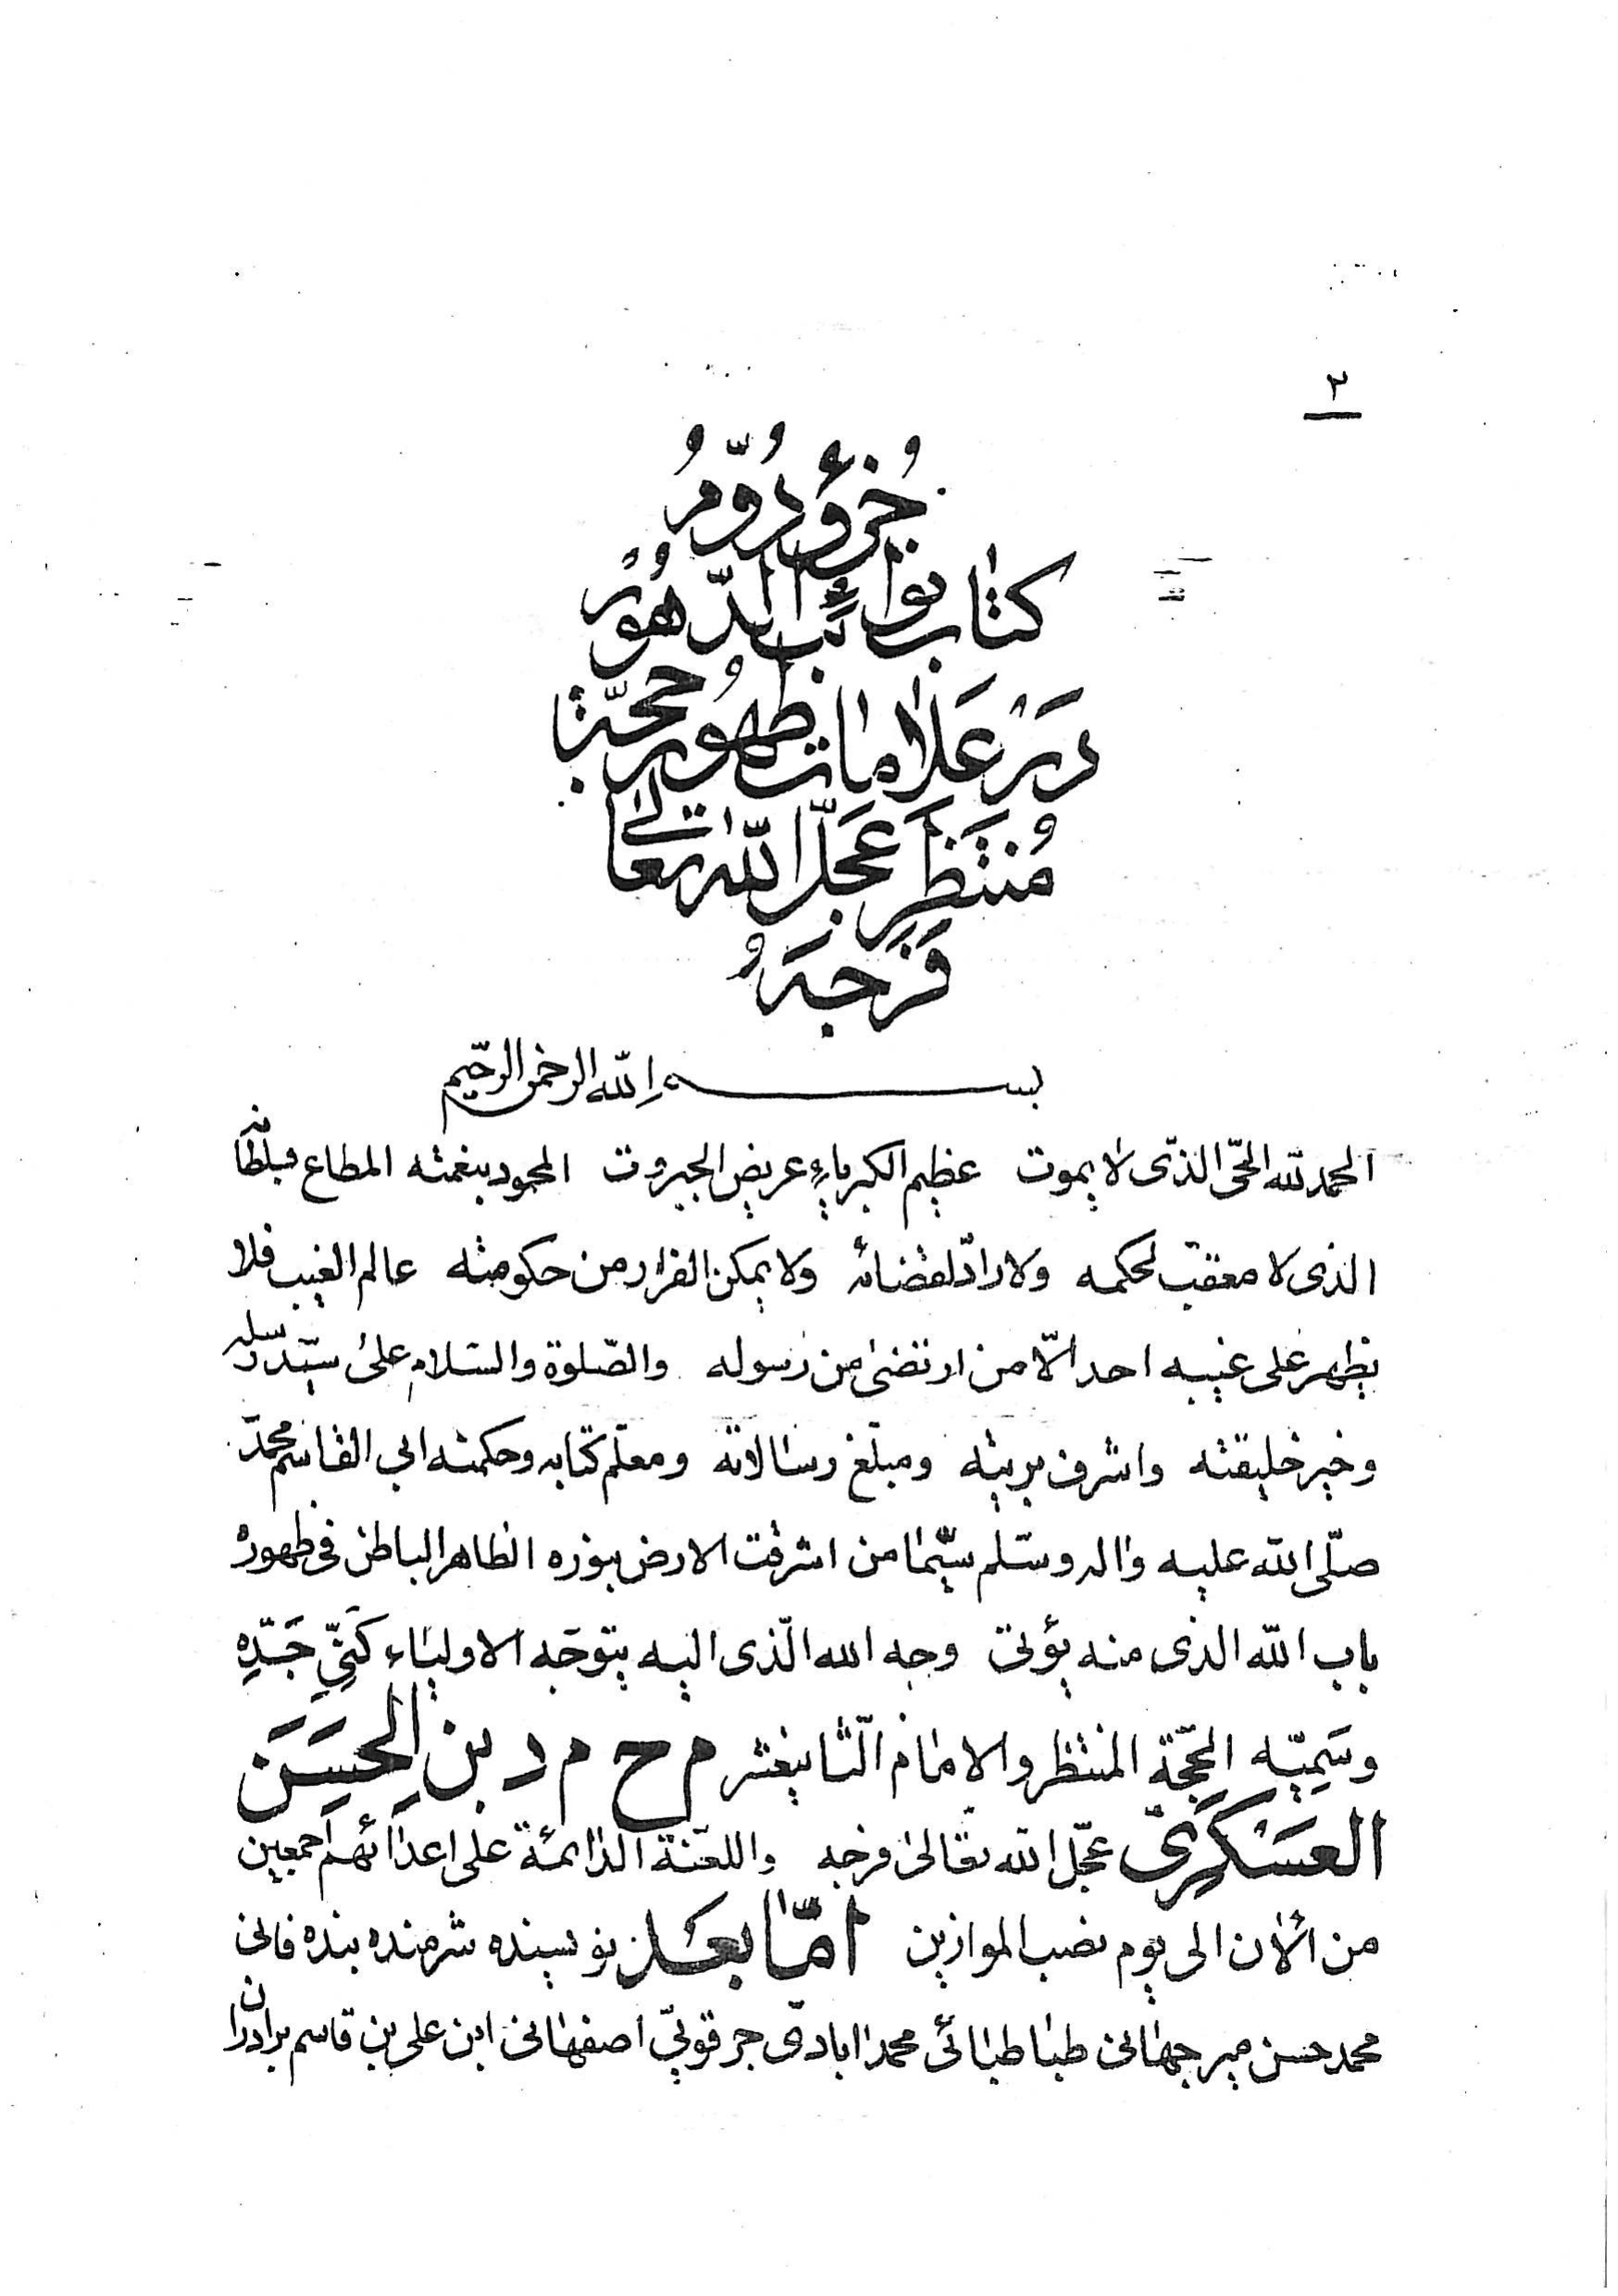 ۲
جُزْؤُ دُوُّمُ
كتاب نوائب الدّهُورْ
دَرْ عَلاماتِ ظُهُورِ حجّتِ
مُنْتَظَرْ عَجَّلَ اللّه تعالى
فَرَجَهُ
بسم اللّه الرحمن الرحيم
الحمد للّه الحىّ الذّى لا يموت عظيم الكبرياء عريض الجبروت المحمود بنعمته المطاع بسلطانه
الذى لا معقّب لحكمه ولا رادّ لقضائه ولا يمكن الفرار من حكومته عالم الغيب فلا
يظهر على غيبه احد الّا من ارتضى من رسوله والصّلوة والسّلام على سيّد رسله
و خير خليقته واشرف بريته ومبلّغ رسالاته ومعلّم كتابه وحكمته ابى القاسم محمّد
صلّى اللّه عليه واله وسلّم سيّما من اشرقت الارض بنوره الظاهر الباطن فى ظهوره
باب اللّه الذى منه يؤتى وجه اللّه الّذى اليه يتوجّه الاولياء كَنِىِّ جَدِّهِ
وسَمِيّه الحجّة المنتظر والامام الثّانيعشر م ح م د بن الحَسَن
العسكرى عجّل اللّه تعالى فرجه واللعنة الدائمة على اعدائهم اجمعين
من الان الى يوم نصب الموازين امّا بعد نويسنده شرمنده بنده فانى
محمد حسن مير جهانى طباطبائى محمد ابادى جرقوئى اصفهانى ابن على بن قاسم برادران را